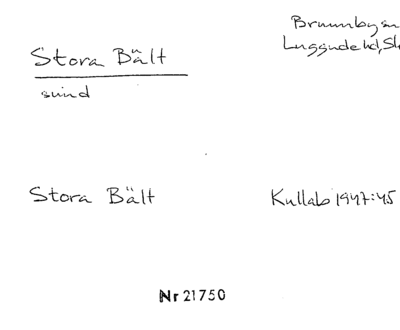 Brunnby sn
Luggude hd, Sk
Stora Bält
sund
Stora Bält
Kullab 1947:45
Nr 21750